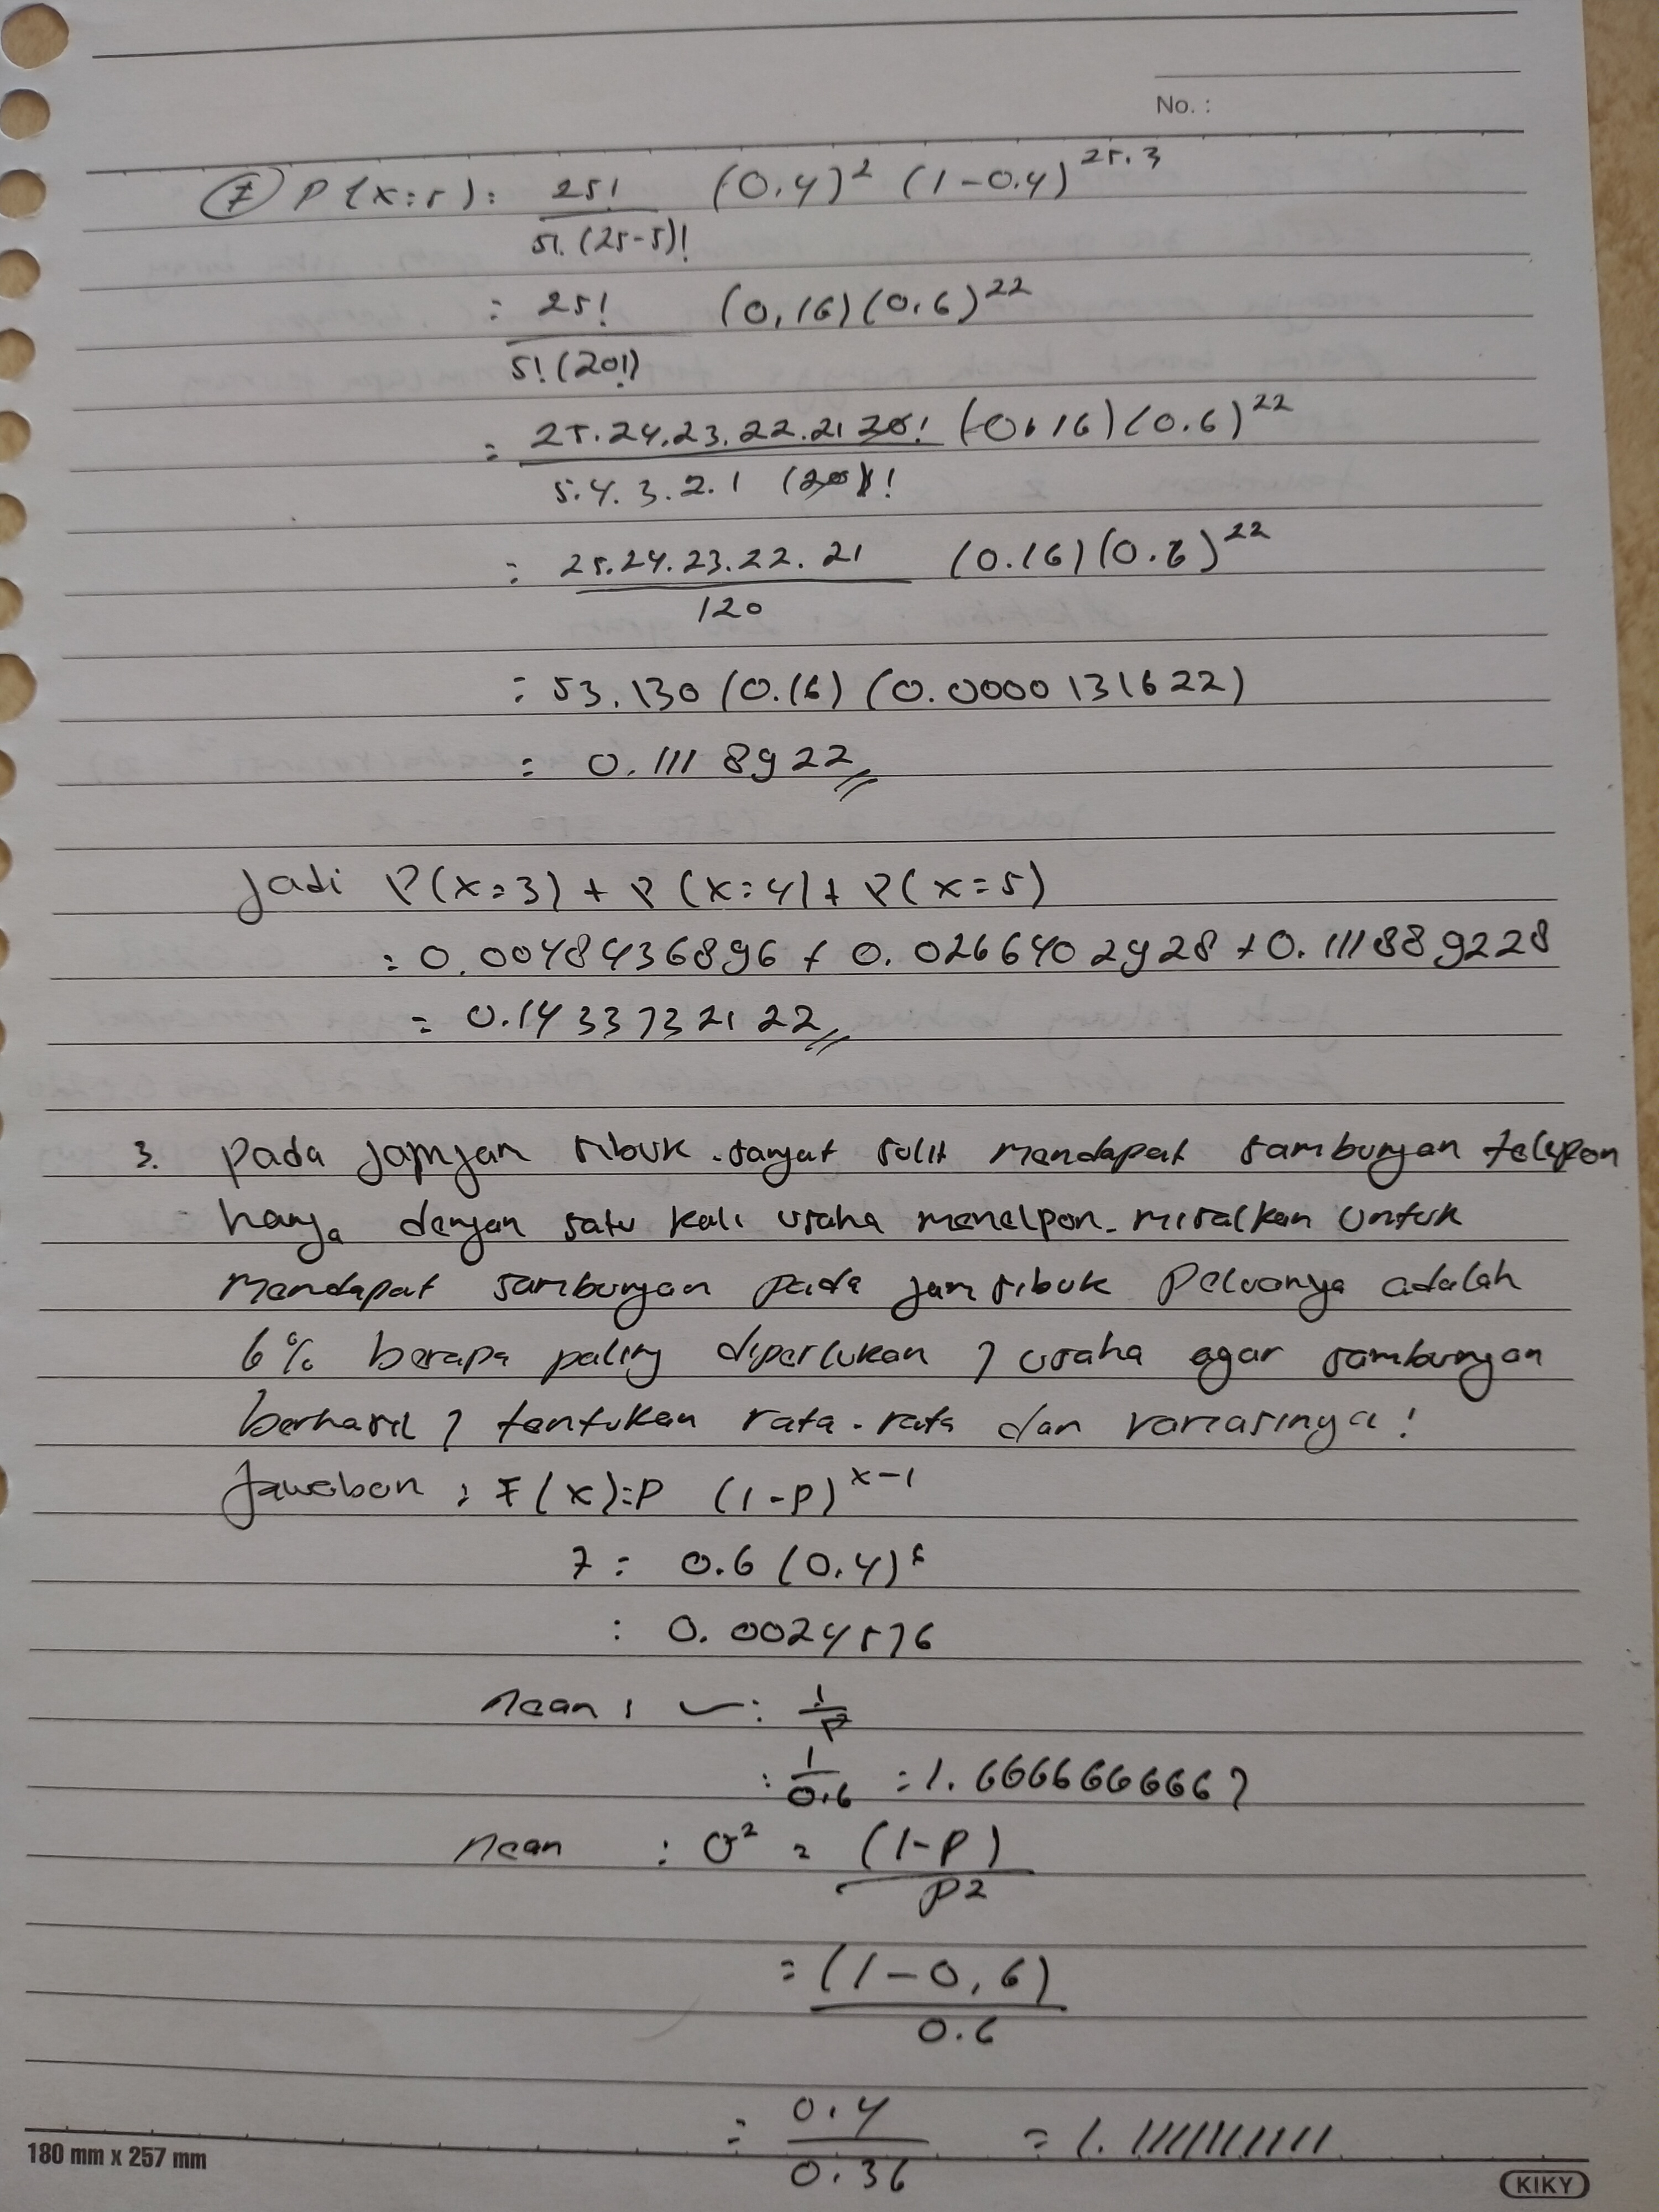 No. :
⑦ P(x:5): 25! / 5!.(25-5)! (0.4)² (1-0.4)^25.3
: 25! / 5!(20!) (0,16)(0.6)^22
= 25.24.23.22.21 20! / 5.4.3.2.1 (20)! (0.16)(0.6)^22
: 25.24.23.22.21 / 120 (0.16)(0.6)^22
: 53.130 (0.16) (0.0000131622)
: 0.1118922
Jadi P(x=3) + P(x=4) + P(x=5)
: 0.0048436896 + 0.0266402928 + 0.111889228
= 0.1433732122
3. pada jamjam sibuk.sangat sulit mendapat sambungan telepon
hanya dengan satu kali usaha menelpon. misalkan untuk
mendapat sambungan pada jam sibuk Peluanya adalah
6% berapa paling diperlukan 7 usaha agar sambungan
berhasil? tentukan rata.rata dan variasinya!
Jawaban : F(x)=P (1-P)^x-1
7 : 0.6 (0.4)^6
: 0.0024576
Mean : : 1/P
: 1/0.6 = 1.6666666667
Mean : σ² = (1-P) / P2
= (1-0,6) / 0.6
= 0.4 / 0.36 = 1.1111111111
180 mm x 257 mm
KIKY